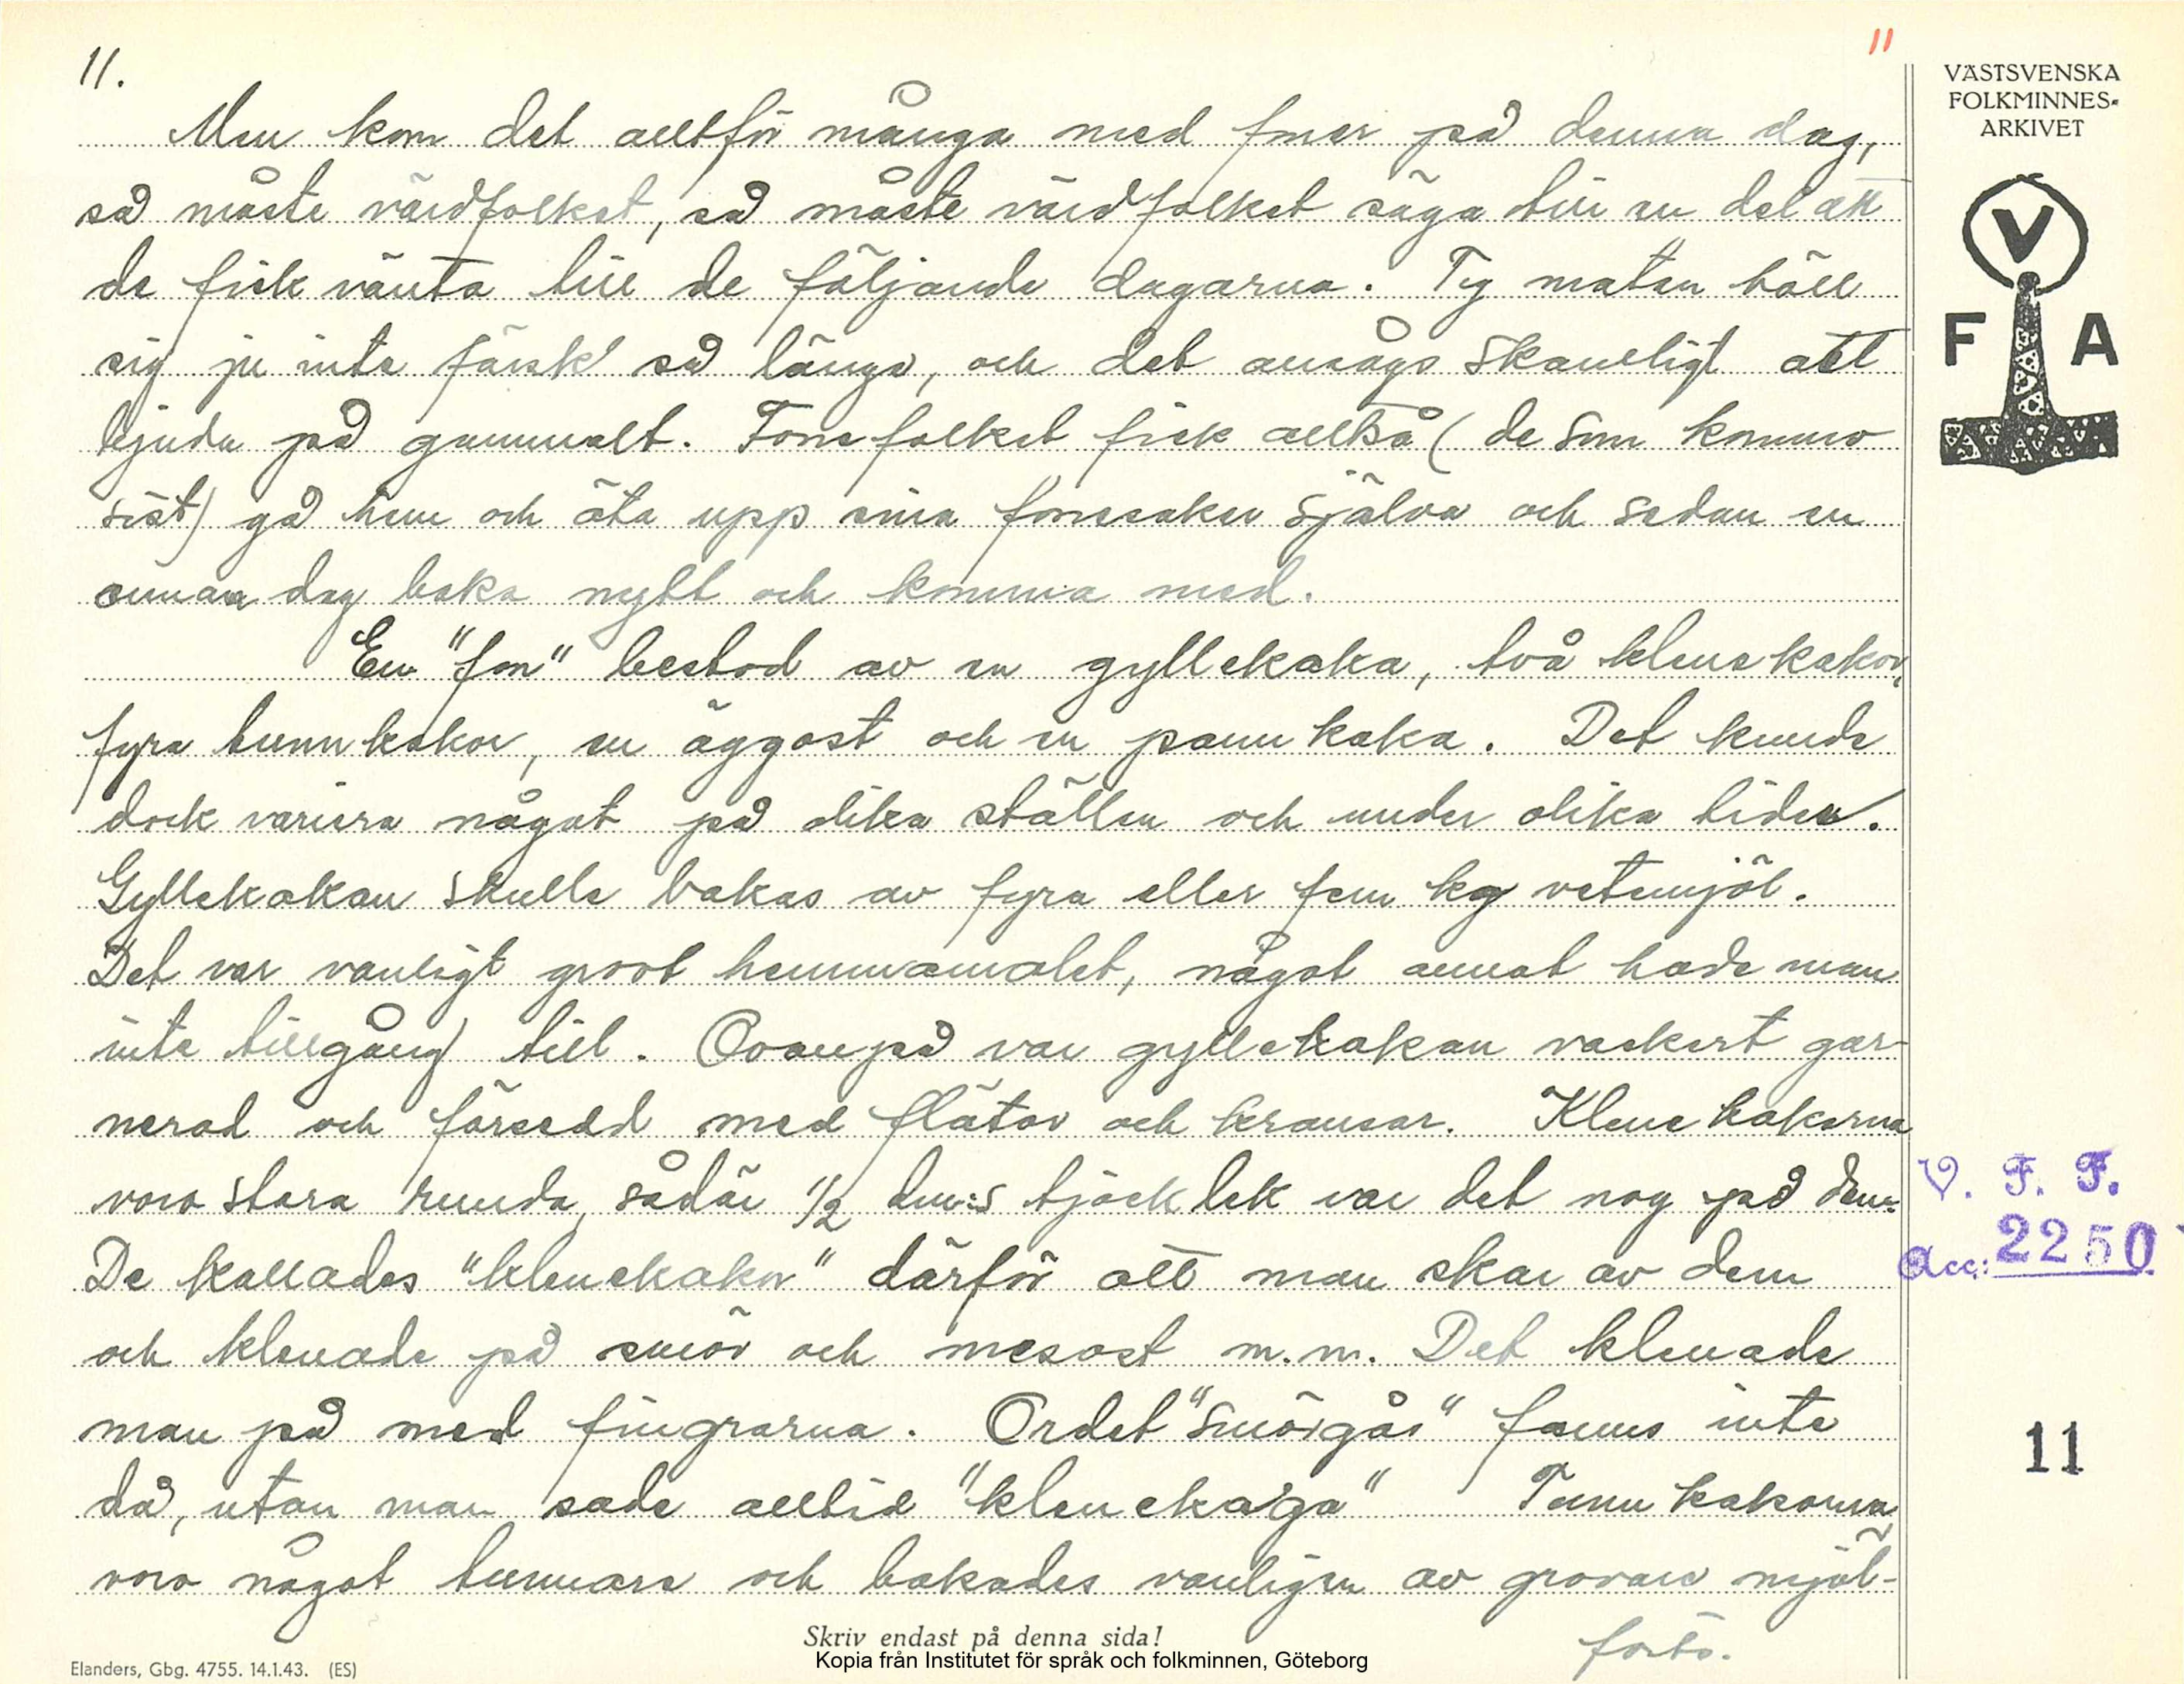 11.
11
VÄSTSVENSKA
FOLKMINNES-
ARKIVET
V
F A
Men kom det alltför många med foner på denna dag,
så måste värdfolket, så måste värdfolket säga till en del att
de fick vänta till de följande dagarna. Ty maten höll
sig ju inte färsk så länge, och det ansågs skamligt att
bjuda på gammalt. Fonefolket fick alltså (de som kommo
sist) gå hem och äta upp sina fonesaker själva och sedan en
annan dag baka nytt och komma med.
En "fon" bestod av en gyllekaka, två klenekakor,
fyra tunnkakor, en äggost och en pannkaka. Det kunde
dock variera något på olika ställen och under olika tider.
Gyllekakan skulle bakas av fyra eller fem kg vetemjöl.
Det var vanligt grovt hemmamalet, något annat hade man
inte tillgång till. Ovanpå var gyllekakan vackert gar-
nerad och försedd med flätor och kransar. Klenekakorna
voro stora runda, sådär 1/2 dm:s tjocklek var det nog på dem.
De kallades "klenekakor" därför att man skar av dem
och klenade på smör och mesost m.m. Det klenade
man på med fingrarna. Ordet "smörgås" fanns inte
då, utan man sade alltid "klenekaga" Tunnkakorna
voro något tunnare och bakades vanligen av grovare mjöl-
forts.
V. F. F.
Acc: 2250
11
Skriv endast på denna sida!
Kopia från Institutet för språk och folkminnen, Göteborg
Elanders, Gbg. 4755. 14.1.43. (ES)